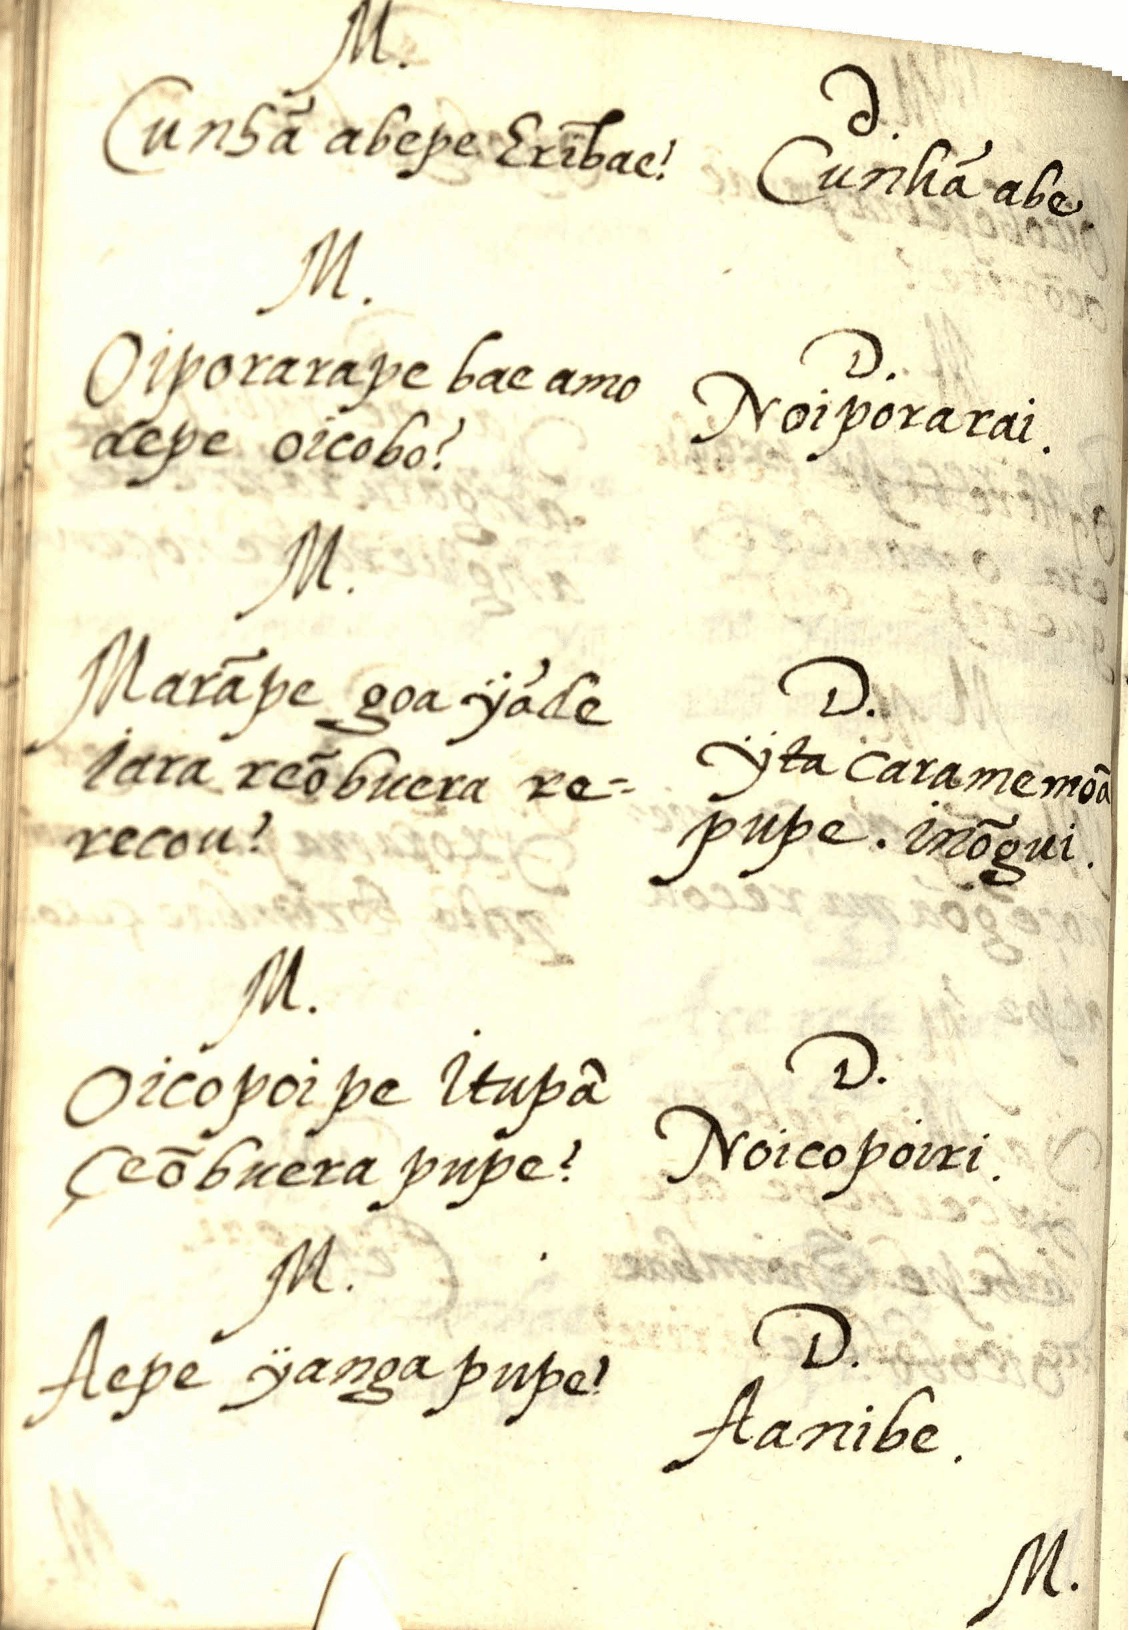 M.
Cunhã abepe Erĩbae?
D.
Cunhã abe
M.
Oiporarape bae amo
aepe oicobo?
D.
Noiporarai.
M.
Marãpe goa ÿáde
Iara reõbuera re=
recou?
D.
ÿta caramemoã
pupe. inõgui.
M.
Oicopoipe Itupã
çeõbuera pupe?
D.
Noicopoiri.
M.
Aepe ÿanga pupe?
D.
Aanibe.
M.